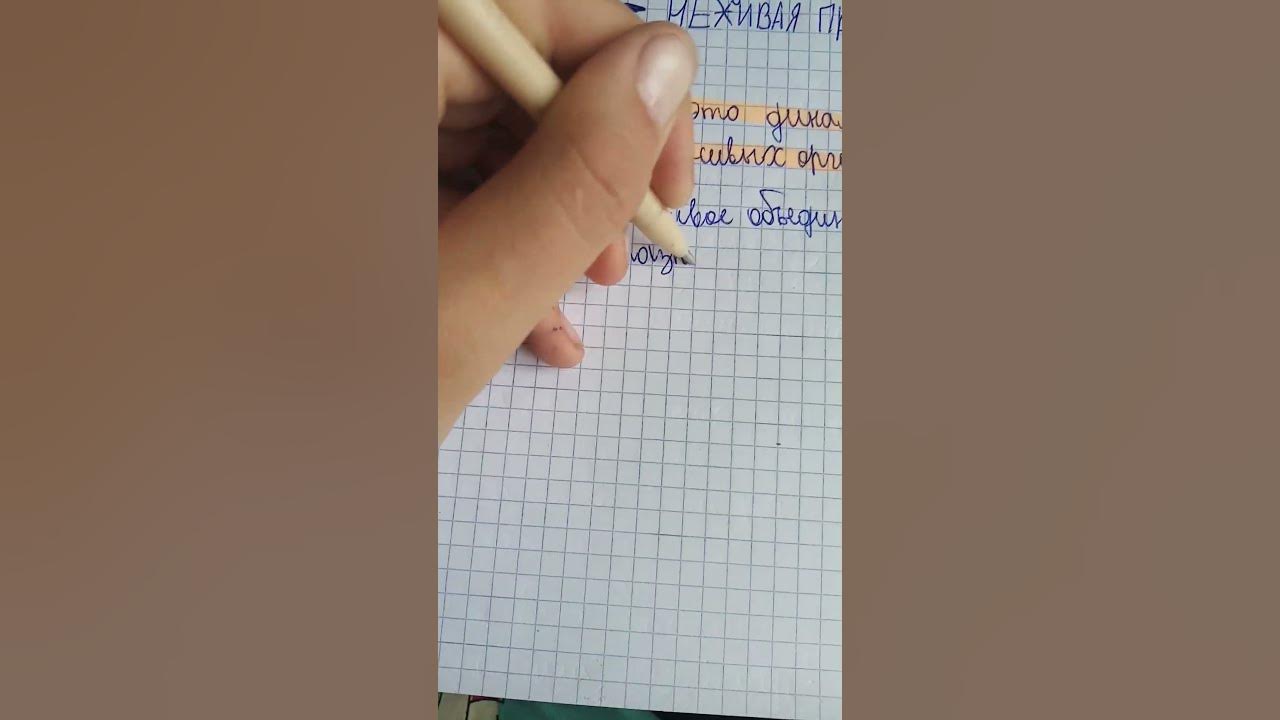 НЕЖИВАЯ ПР
это дина
живых орга
ивое объедин
разн